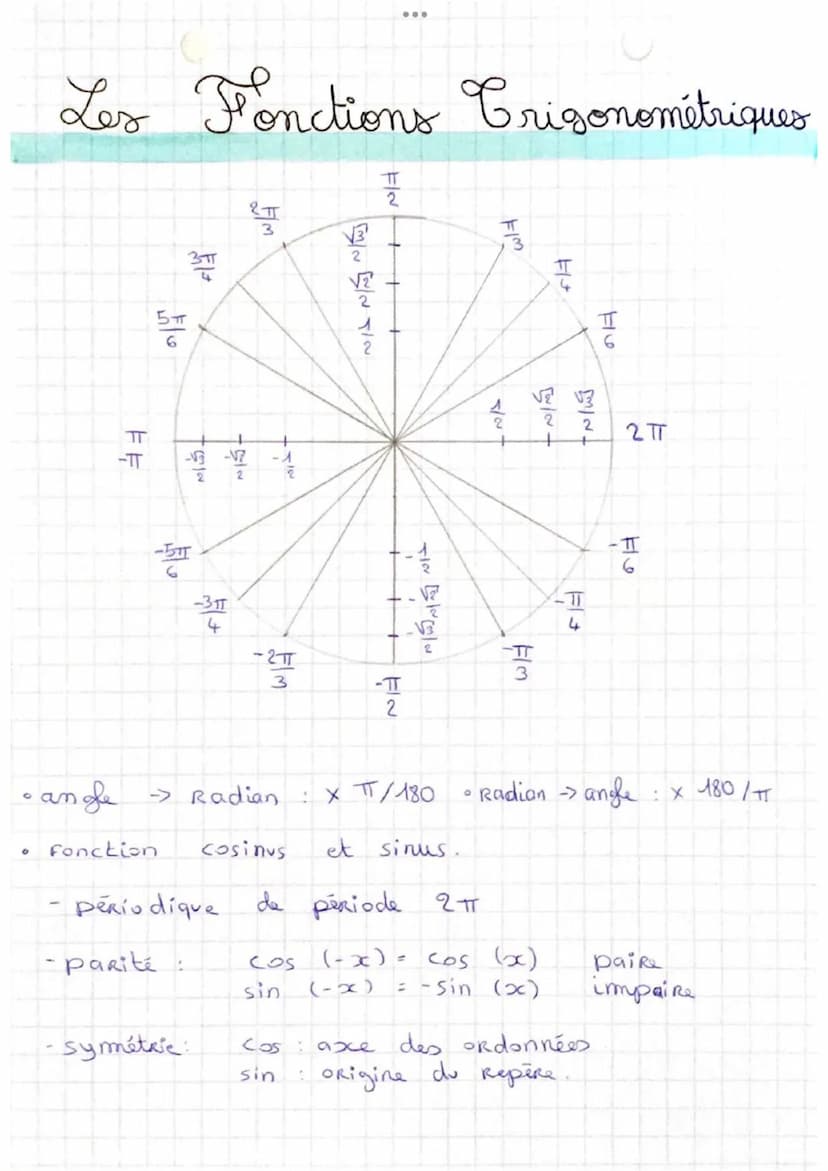 Les Fonctions Trigonométriques
π/2
2π/3
π/3
3π/4
π/4
5π/6
π/6
√3/2
√2/2
1/2
1/2 √2/2 √3/2
π
-π
2π
-√3/2 -√2/2 -1/2
-5π/6
-π/6
-1/2
-√2/2
-√3/2
-3π/4
-π/4
-2π/3
-π/3
-π/2
• angle -> Radian : x π/180 • Radian -> angle : x 180/π
• Fonction cosinus et sinus.
- périodique de période 2π
- parité : cos (-x) = cos (x) paire
sin (-x) = -sin (x) impaire
- symétrie: cos : axe des ordonnées
sin : origine du repère.